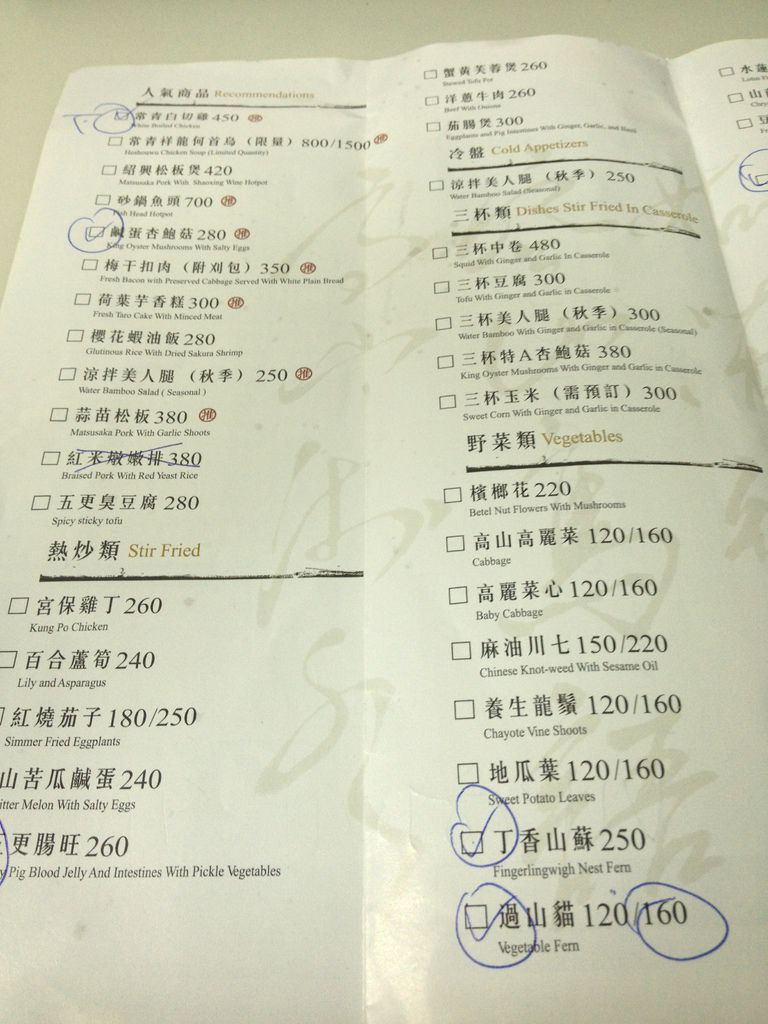 人氣商品 Recommendations
常青白切雞 450 推
White Boiled Chicken
常青祥龍何首烏（限量）800/1500 推
Heshouwu Chicken Soup (Limited Quantity)
紹興松板煲 420
Matsusaka Pork With Shaoxing Wine Hotpot
砂鍋魚頭 700 推
Fish Head Hotpot
鹹蛋杏鮑菇 280 推
King Oyster Mushrooms With Salty Eggs
梅干扣肉（附刈包）350 推
Fresh Bacon with Preserved Cabbage Served With White Plain Bread
荷葉芋香糕 300 推
Fresh Taro Cake With Minced Meat
櫻花蝦油飯 280
Glutinous Rice With Dried Sakura Shrimp
涼拌美人腿（秋季）250 推
Water Bamboo Salad ( Seasonal )
蒜苗松板 380 推
Matsusaka Pork With Garlic Shoots
紅米燉嫩排 380
Braised Pork With Red Yeast Rice
五更臭豆腐 280
Spicy sticky tofu
熱炒類 Stir Fried
宮保雞丁 260
Kung Po Chicken
百合蘆筍 240
Lily and Asparagus
紅燒茄子 180/250
Simmer Fried Eggplants
山苦瓜鹹蛋 240
itter Melon With Salty Eggs
更腸旺 260
y Pig Blood Jelly And Intestines With Pickle Vegetables
蟹黃芙蓉煲 260
Stewed Tofu Pot
洋蔥牛肉 260
Beef With Onions
茄腸煲 300
Eggplants and Pig Intestines With Ginger, Garlic, and Basil
冷盤 Cold Appetizers
涼拌美人腿（秋季）250
Water Bamboo Salad (Seasonal)
三杯類 Dishes Stir Fried In Casserole
三杯中卷 480
Squid With Ginger and Garlic In Casserole
三杯豆腐 300
Tofu With Ginger and Garlic in Casserole
三杯美人腿（秋季）300
Water Bamboo With Ginger and Garlic in Casserole (Seasonal)
三杯特A杏鮑菇 380
King Oyster Mushrooms With Ginger and Garlic in Casserole
三杯玉米（需預訂）300
Sweet Corn With Ginger and Garlic in Casserole
野菜類 Vegetables
檳榔花 220
Betel Nut Flowers With Mushrooms
高山高麗菜 120/160
Cabbage
高麗菜心 120/160
Baby Cabbage
麻油川七 150/220
Chinese Knot-weed With Sesame Oil
養生龍鬚 120/160
Chayote Vine Shoots
地瓜葉 120/160
Sweet Potato Leaves
丁香山蘇 250
Fingerlingwigh Nest Fern
過山貓 120/160
Vegetable Fern
水蓮
Lotus
山
豆